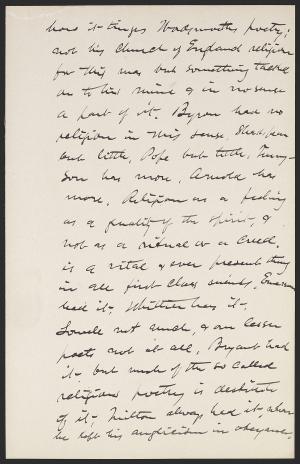 how it tinges Wordsworths poetry;
not his Church of England religion
for this was but something tacked
on to his mind & in no sense
a part of it. Byron had no
religion in this sense, Shakspear
but little, Pope but little, Tenny-
son has more, Arnold has
more. Religion as a feeling
as a quality of the spirit, &
not as a ritual or a creed,
is a vital & ever present thing
in all first class minds, Emerson
had it, Whittier has it,
Lowell not much, & our lesser
poets not at all, Bryant had
it - but much of the so called
religious poetry is destitute
of it. Milton always had it, when
he left his anglicism in abeyance.